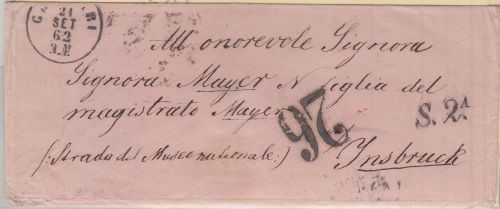 24
SET
62
All onorevole Signora
Signora Mayer N figlia del
magistrato Mayer
26
S. 2ª
(: Strada del Museo nationale :)
Insbruck